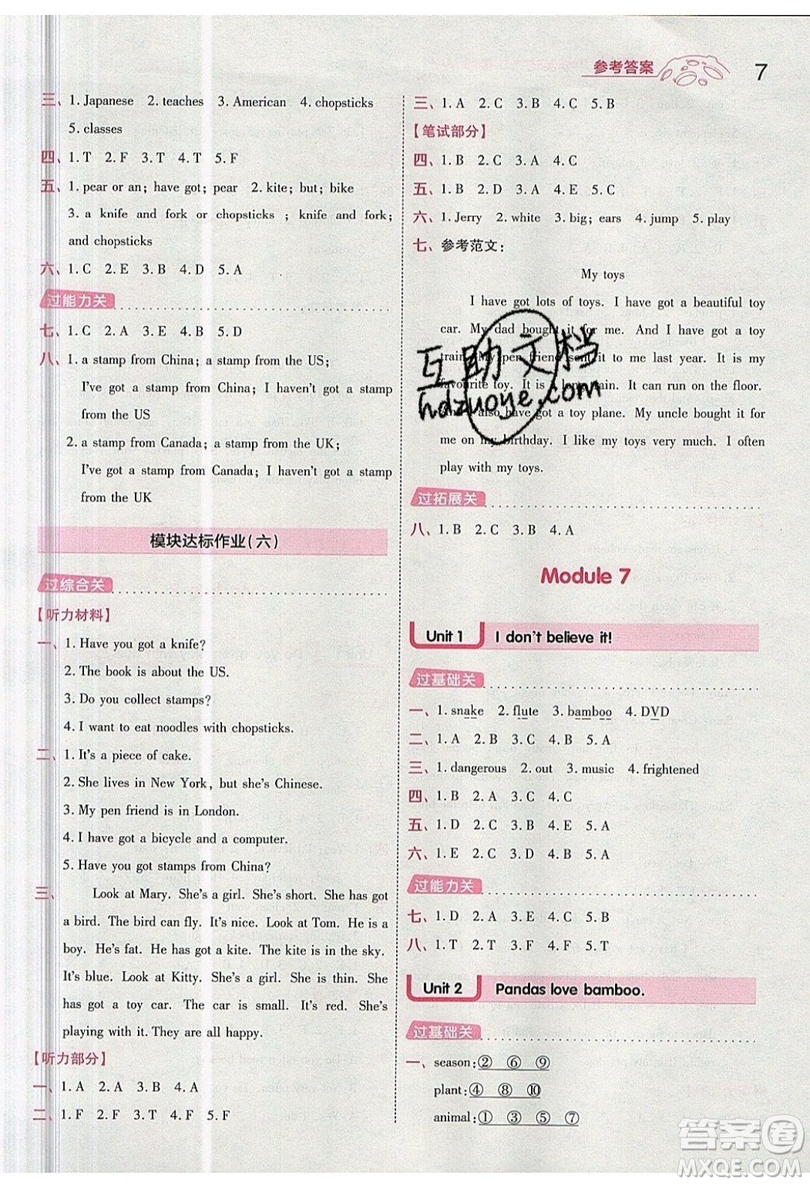 参考答案
7
三、1. Japanese 2. teaches 3. American 4. chopsticks
5. classes
四、1. T 2. F 3. T 4. T 5. F
五、1. pear or an; have got; pear 2. kite; but; bike
3. a knife and fork or chopsticks ; knife and fork;
and chopsticks
六、1. C 2. E 3. F 4. D 5. A
过能力关
七、1. C 2. A 3. E 4. B 5. D
八、1. a stamp from China; a stamp from the US;
I've got a stamp from China; I haven't got a stamp
from the US
2. a stamp from Canada; a stamp from the UK;
I've got a stamp from Canada; I haven't got a stamp
from the UK
模块达标作业(六)
过综合关
【听力材料】
一、1. Have you got a knife?
2. The book is about the US.
3. Do you collect stamps?
4. I want to eat noodles with chopsticks.
二、1. It's a piece of cake.
2. She lives in New York, but she's Chinese.
3. My pen friend is in London.
4. I have got a bicycle and a computer.
5. Have you got stamps from China?
三、 Look at Mary. She's a girl. She's short. She has got
a bird. The bird can fly. It's nice. Look at Tom. He is a
boy. He's fat. He has got a kite. The kite is in the sky.
It's blue. Look at Kitty. She's a girl. She is thin. She
has got a toy car. The car is small. It's red. She's
playing with it. They are all happy.
【听力部分】
一、1. A 2. A 3. B 4. B
二、1. F 2. F 3. T 4. T 5. F
三、1. A 2. C 3. B 4. C 5. B
【笔试部分】
四、1. B 2. C 3. A 4. C
五、1. B 2. D 3. A 4. E 5. C
六、1. Jerry 2. white 3. big; ears 4. jump 5. play
七、参考范文:
My toys
I have got lots of toys. I have got a beautiful toy
car. My dad bought it for me. And I have got a toy
train. My pen friend sent it to me last year. It is my
favourite toy. It is a long train. It can run on the floor.
And I also have got a toy plane. My uncle bought it for
me on my birthday. I like my toys very much. I often
play with my toys.
互助文档
hdzuoye.com
过拓展关
八、1. B 2. C 3. B 4. A
Module 7
Unit 1 I don't believe it!
过基础关
一、1. snake 2. flute 3. bamboo 4. DVD
二、1. A 2. B 3. B 4. A
三、1. dangerous 2. out 3. music 4. frightened
四、1. B 2. A 3. C 4. C
五、1. D 2. C 3. B 4. A
六、1. E 2. C 3. B 4. D 5. A
过能力关
七、1. D 2. A 3. E 4. C 5. B
八、1. T 2. T 3. F 4. F 5. T
Unit 2 Pandas love bamboo.
过基础关
一、season: ② ⑥ ⑨
plant: ④ ⑧ ⑩
animal: ① ③ ⑤ ⑦
答案圈
MXQE.COM